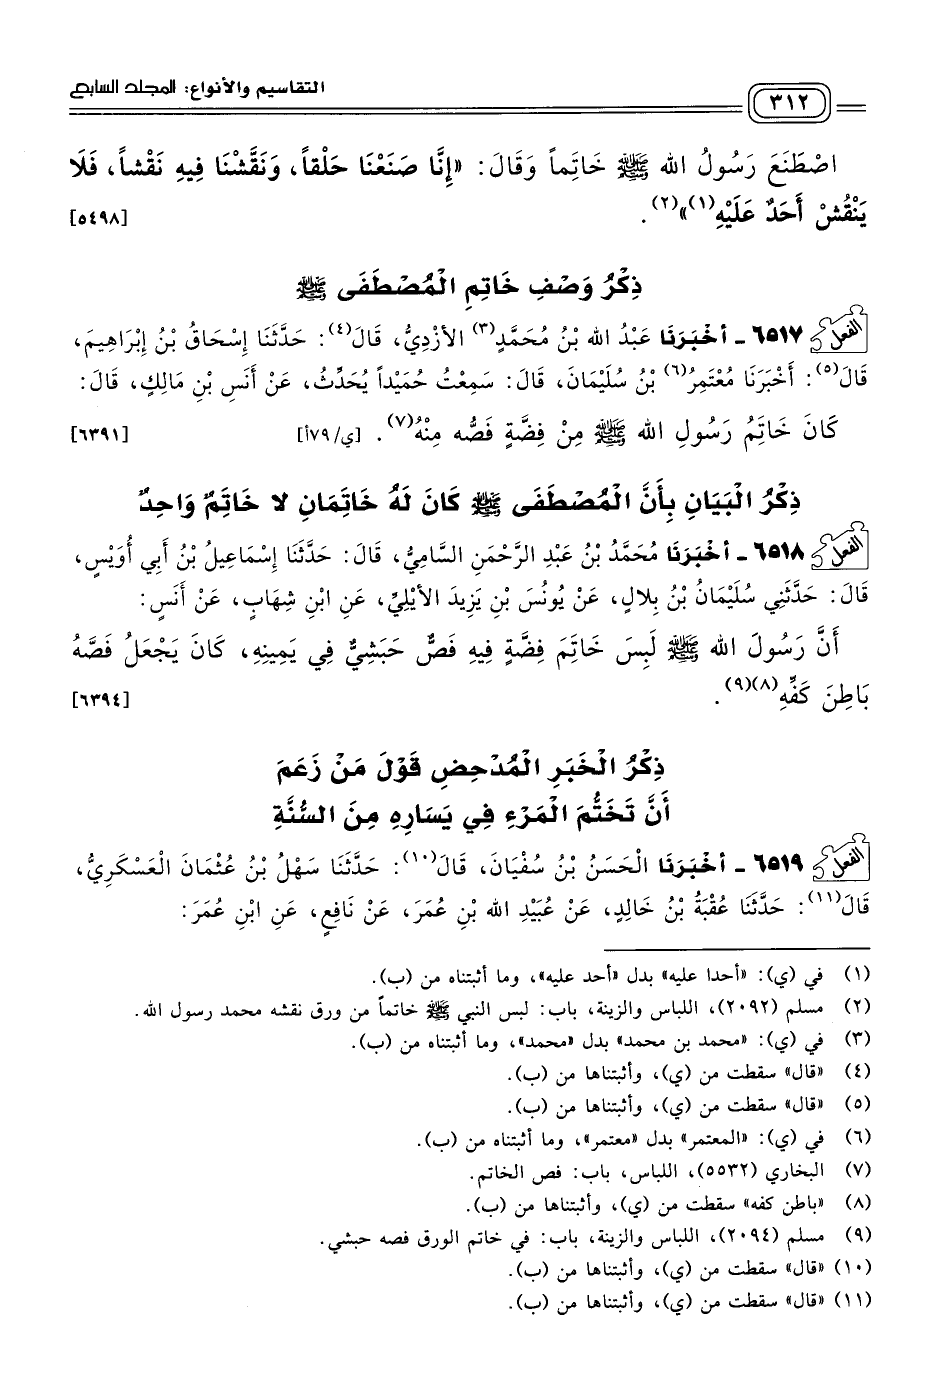 التقاسيم والأنواع: المجلد السابع
٣١٢
اصْطَنَعَ رَسُولُ الله ﷺ خَاتِماً وَقَالَ: «إِنَّا صَنَعْنَا حَلْقاً، وَنَقَّشْنَا فِيهِ نَقْشاً، فَلَا
يَنْقُشْ أَحَدٌ عَلَيْهِ(١)»(٢). [٥٤٩٨]
ذِكْرُ وَصْفِ خَاتِمِ الْمُصْطَفَى ﷺ
الفعل ٦٥١٧ - أخْبَرَنَا عَبْدُ الله بْنُ مُحَمَّدٍ(٣) الأزْدِيُّ، قَالَ(٤): حَدَّثَنَا إسْحَاقُ بْنُ إبْرَاهِيمَ،
قَالَ(٥): أَخْبَرَنَا مُعْتَمِرُ(٦) بْنُ سُلَيْمَانَ، قَالَ: سَمِعْتُ حُمَيْداً يُحَدِّثُ، عَنْ أَنَسِ بْنِ مَالِكٍ، قَالَ:
كَانَ خَاتِمُ رَسُولِ الله ﷺ مِنْ فِضَّةٍ فَصُّه مِنْهُ(٧). [ي/٧٩أ] [٦٣٩١]
ذِكْرُ الْبَيَانِ بِأَنَّ الْمُصْطَفَى ﷺ كَانَ لَهُ خَاتِمَانِ لا خَاتِمٌ وَاحِدٌ
الفعل ٦٥١٨ - أخْبَرَنَا مُحَمَّدُ بْنُ عَبْدِ الرَّحْمَنِ السَّامِيُّ، قَالَ: حَدَّثَنَا إسْمَاعِيلُ بْنُ أبي أُوَيْسٍ،
قَالَ: حَدَّثَنِي سُلَيْمَانُ بْنُ بِلالٍ، عَنْ يُونُسَ بْنِ يَزِيدَ الأيْلِيِّ، عَنِ ابْنِ شِهَابٍ، عَنْ أنَسٍ:
أَنَّ رَسُولَ الله ﷺ لَبِسَ خَاتِمَ فِضَّةٍ فِيهِ فَصٌّ حَبَشِيٌّ فِي يَمِينِهِ، كَانَ يَجْعَلُ فَصَّهُ
بَاطِنَ كَفِّهِ(٨)(٩). [٦٣٩٤]
ذِكْرُ الْخَبَرِ الْمُدْحِضِ قَوْلَ مَنْ زَعَمَ
أَنَّ تَخَتُّمَ الْمَرْءِ فِي يَسَارِهِ مِنَ السُّنَّةِ
الفعل ٦٥١٩ - أخْبَرَنَا الْحَسَنُ بْنُ سُفْيَانَ، قَالَ(١٠): حَدَّثَنَا سَهْلُ بْنُ عُثْمَانَ الْعَسْكَرِيُّ،
قَالَ(١١): حَدَّثَنَا عُقْبَةُ بْنُ خَالِدٍ، عَنْ عُبَيْدِ الله بْنِ عُمَرَ، عَنْ نَافِعٍ، عَنِ ابْنِ عُمَرَ:
(١) في (ي): «أحدا عليه» بدل «أحد عليه»، وما أثبتناه من (ب).
(٢) مسلم (٢٠٩٢)، اللباس والزينة، باب: لبس النبي ﷺ خاتماً من ورق نقشه محمد رسول الله.
(٣) في (ي): «محمد بن محمد» بدل «محمد»، وما أثبتناه من (ب).
(٤) «قال» سقطت من (ي)، وأثبتناها من (ب).
(٥) «قال» سقطت من (ي)، وأثبتناها من (ب).
(٦) في (ي): «المعتمر» بدل «معتمر»، وما أثبتناه من (ب).
(٧) البخاري (٥٥٣٢)، اللباس، باب: فص الخاتم.
(٨) «باطن كفه» سقطت من (ي)، وأثبتناها من (ب).
(٩) مسلم (٢٠٩٤)، اللباس والزينة، باب: في خاتم الورق فصه حبشي.
(١٠) «قال» سقطت من (ي)، وأثبتناها من (ب).
(١١) «قال» سقطت من (ي)، وأثبتناها من (ب).